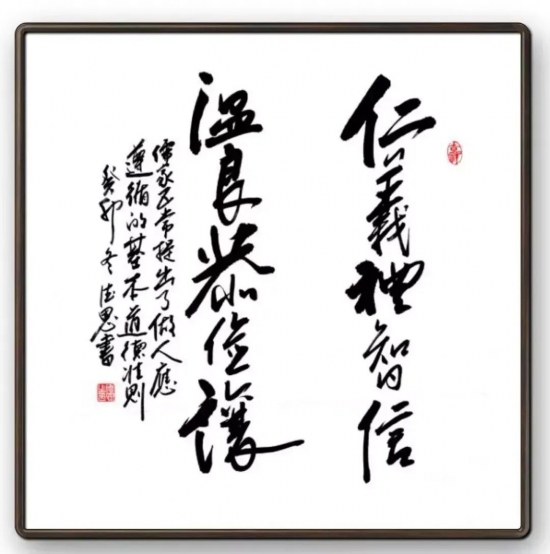 仁義禮智信
温良恭儉讓
儒家五常提出了做人應
遵循的基本道德准则
癸卯冬 德思書